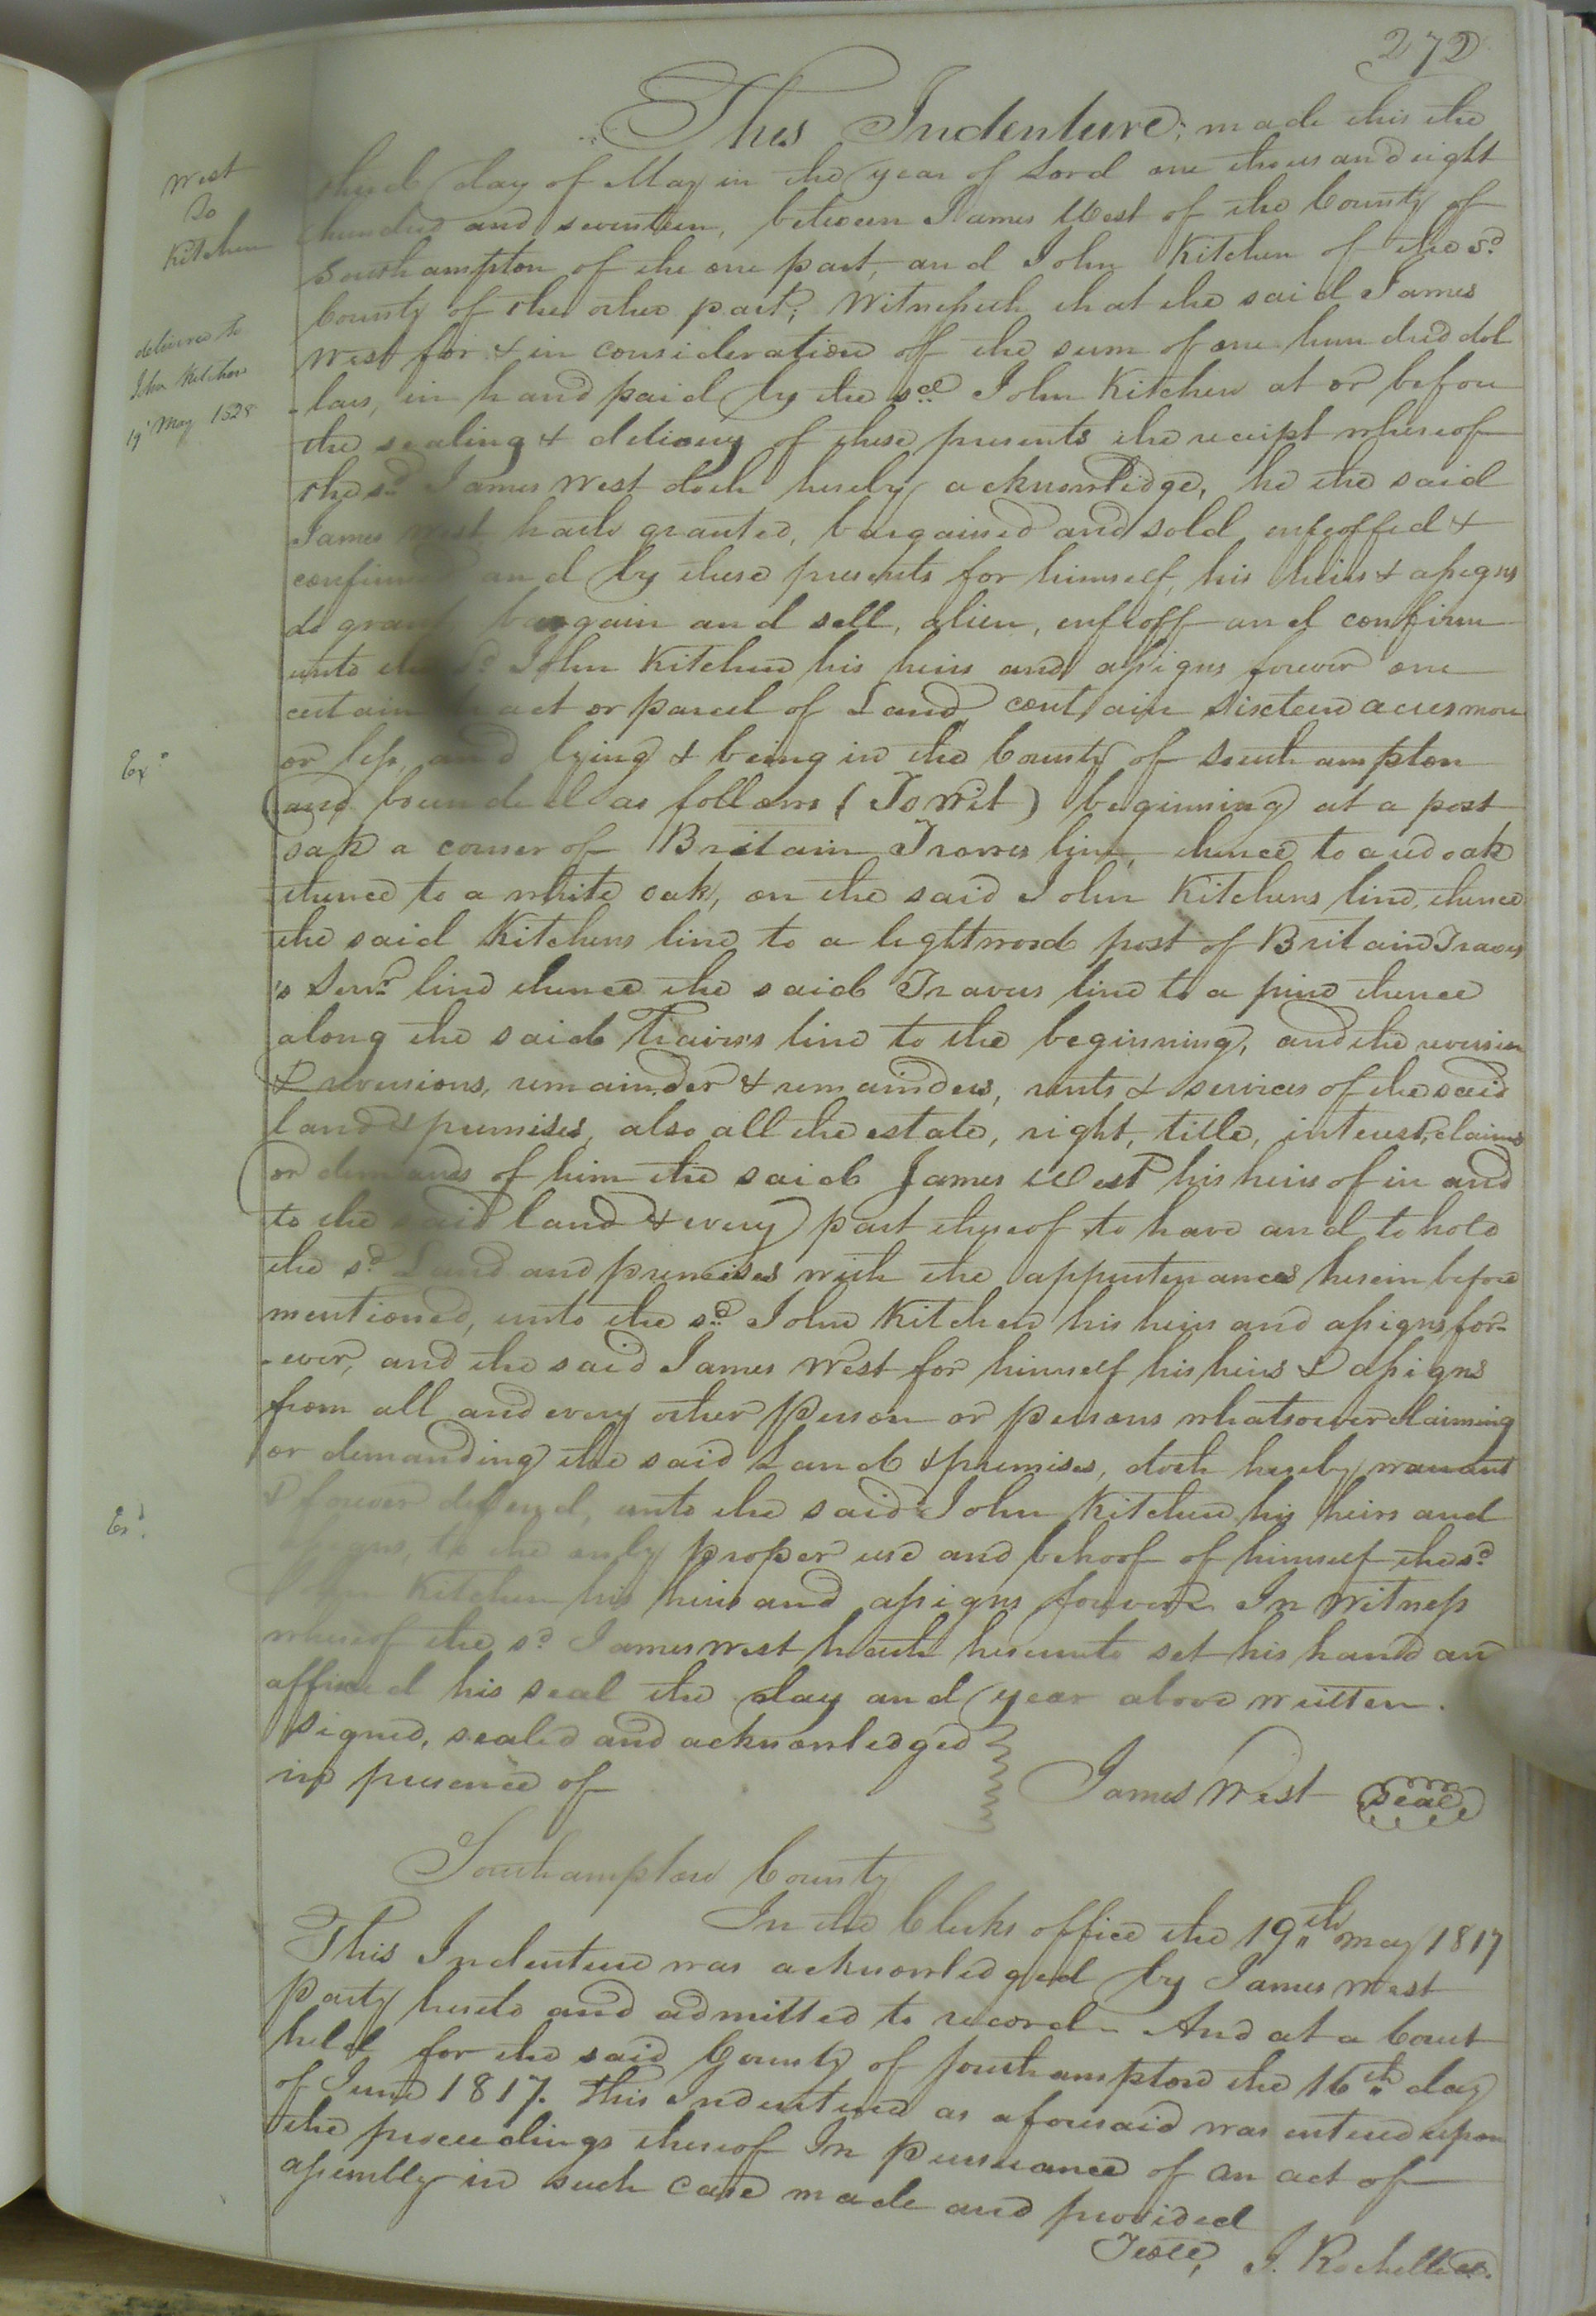 272
This Indenture; made this the
third day of May in the year of Lord one thousand eight
hundred and seventeen, between James West of the County of
Southampton of the one part, and John Kitchen of the sd
County of the other part; Witnesseth that the said James
West for & in consideration off the sum of one hundred dol
-lars, in hand paid by the sd John Kitchen at or before
the sealing & delivery of these presents the receipt whereof
the sd James West doth hereby acknowledge, he the said
James West hath granted, bargained and sold, enfeoffed &
confirmed and by these presents for himself, his heirs & assigns
do grant bargain and sell, alien, enfeoff and confirm
unto the sd John Kitchen his heirs and assigns forever one
certain tract or parcel of Land contain sixteen acres more
or less, and lying & being in the County of Southampton
and bounded as follows (Towit) beginning at a post
oak a corner of Britain Travis line, thence to a red oak
thence to a white oak, on the said John Kitchens line, thence
the said Kitchens line to a lightwood post of Britain Travis
's Senr line thence the said Travis line to a pine thence
along the said Travis's line to the beginning, and the reversion
& reversions, remainder & remainders, rents & services of the said
land & premises, also all the estate, right, title, interest, claims
or demands of him the said James West his heirs of in and
to the said land & every part thereof to have and to hold
the sd Land and premises with the appurtenances herein before
mentioned, unto the sd John Kitchen his heirs and assigns for-
-ever, and the said James West for himself his heirs & assigns
from all and every other person or persons whatsoever claiming
or demanding the said Land & premises, doth hereby warrant
& forever defend, unto the said John Kitchen his heirs and
assigns, to the only proper use and behoof of himself the sd
John Kitchen his heirs and assigns forever. In Witness
whereof the sd James West hath hereunto set his hand and
affixed his seal the day and year above written.
Signed, sealed and acknowledged
in presence of
James West seal
Southampton County
In the Clerks office the 19th May 1817
This Indenture was acknowledged by James West
party hereto and admitted to record - And at a Court
held for the said County of Southampton the 16th day
of June 1817. This Indenture as aforesaid was entered upon
the proceedings thereof In pursuance of an act of
assembly in such case made and provided
Teste, J. Rochelle
West
To
Kitchen
delivered to
John Kitchen
19 May 1828
Exd
Exd